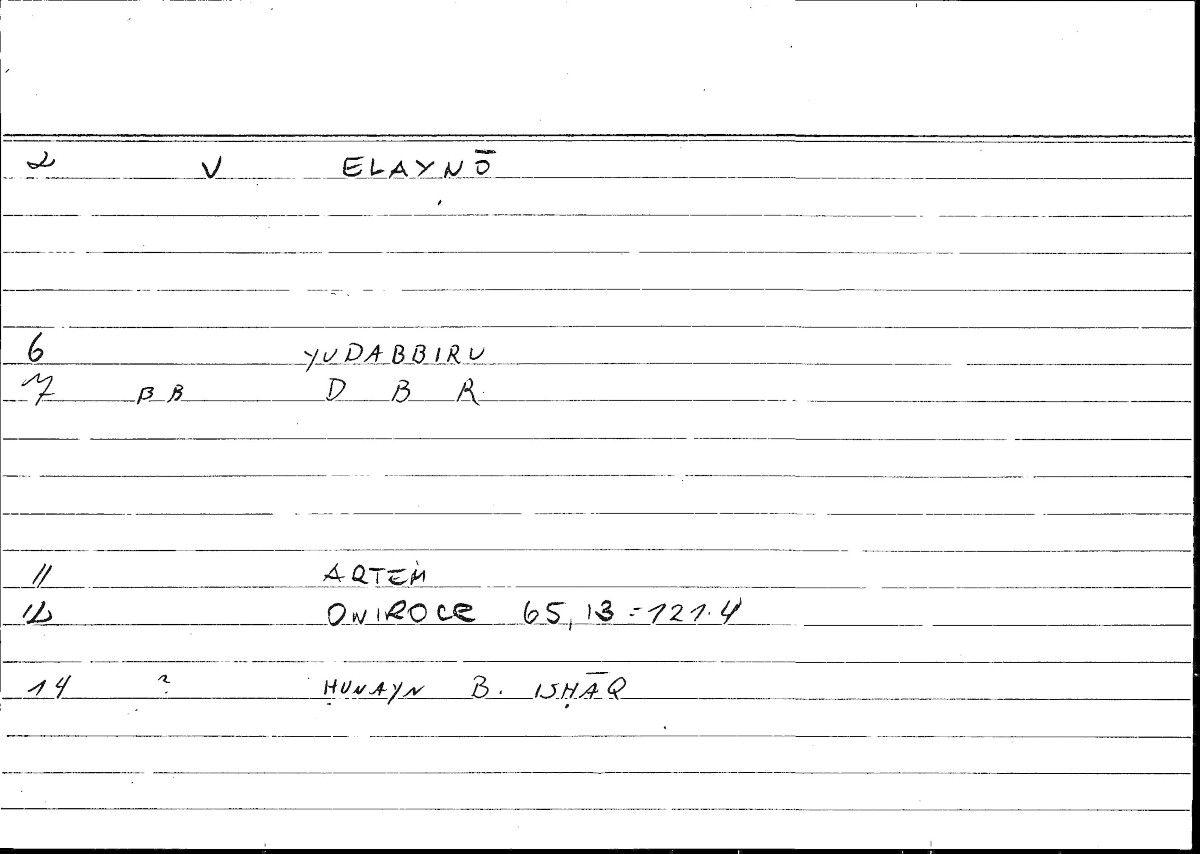 2 V ELAYNŌ
6 YUDABBIRU
7 BB D B R
11 ARTEM
12 ONIROCR 65,13=121.4
14 ? ḤUNAYN B. ISḤĀQ